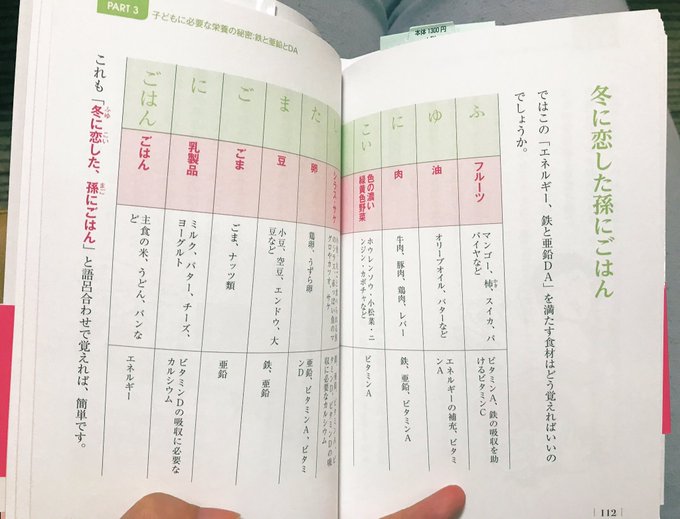 冬に恋した孫にごはん
ではこの「エネルギー、鉄と亜鉛DA」を満たす食材はどう覚えればいいの
でしょうか。
ふ
フルーツ
マンゴー、柿、スイカ、パ
パイヤなど
ビタミンA、鉄の吸収を助
けるビタミンC
ゆ
油
オリーブオイル、バターなど
エネルギーの補充、ビタミ
ンA
に
肉
牛肉、豚肉、鶏肉、レバー
鉄、亜鉛、ビタミンA
こい
色の濃い
緑黄色野菜
ホウレンソウ・小松菜・ニ
ンジン・カボチャなど
ビタミンA
112
PART 3
子どもに必要な栄養の秘密:鉄と亜鉛とDA
た
卵
鶏卵、うずら卵
亜鉛、ビタミンA、ビタミ
ンD
ま
豆
小豆、空豆、エンドウ、大
豆など
鉄、亜鉛
ご
ごま
ごま、ナッツ類
亜鉛
に
乳製品
ミルク、バター、チーズ、
ヨーグルト
ビタミンDの吸収に必要な
カルシウム
ごはん
ごはん
主食の米、うどん、パンな
ど
エネルギー
これも「冬に恋した、孫にごはん」と語呂合わせで覚えれば、簡単です。
本体1300円